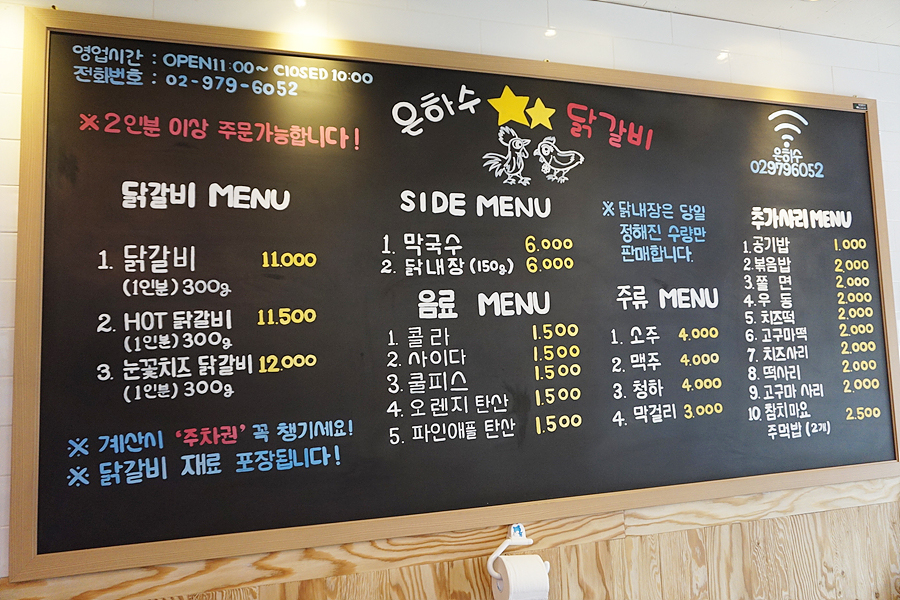 영업시간 : OPEN 11:00 ~ CLOSED 10:00
전화번호 : 02-979-6052
※ 2인분 이상 주문가능합니다!
은하수 닭갈비
은하수
029796052
닭갈비 MENU
1. 닭갈비 11.000
(1인분) 300g
2. HOT 닭갈비 11.500
(1인분) 300g
3. 눈꽃치즈 닭갈비 12.000
(1인분) 300g
※ 계산시 '주차권' 꼭 챙기세요!
※ 닭갈비 재료 포장됩니다!
SIDE MENU
1. 막국수 6.000
2. 닭내장 (150g) 6.000
※ 닭내장은 당일
정해진 수량만
판매합니다.
음료 MENU
1. 콜라 1.500
2. 사이다 1.500
3. 쿨피스 1.500
4. 오렌지 탄산 1.500
5. 파인애플 탄산 1.500
주류 MENU
1. 소주 4.000
2. 맥주 4.000
3. 청하 4.000
4. 막걸리 3.000
추가사리 MENU
1. 공기밥 1.000
2. 볶음밥 2.000
3. 쫄면 2.000
4. 우동 2.000
5. 치즈떡 2.000
6. 고구마떡 2.000
7. 치즈사리 2.000
8. 떡사리 2.000
9. 고구마 사리 2.000
10. 참치마요 2.500
주먹밥 (2개)